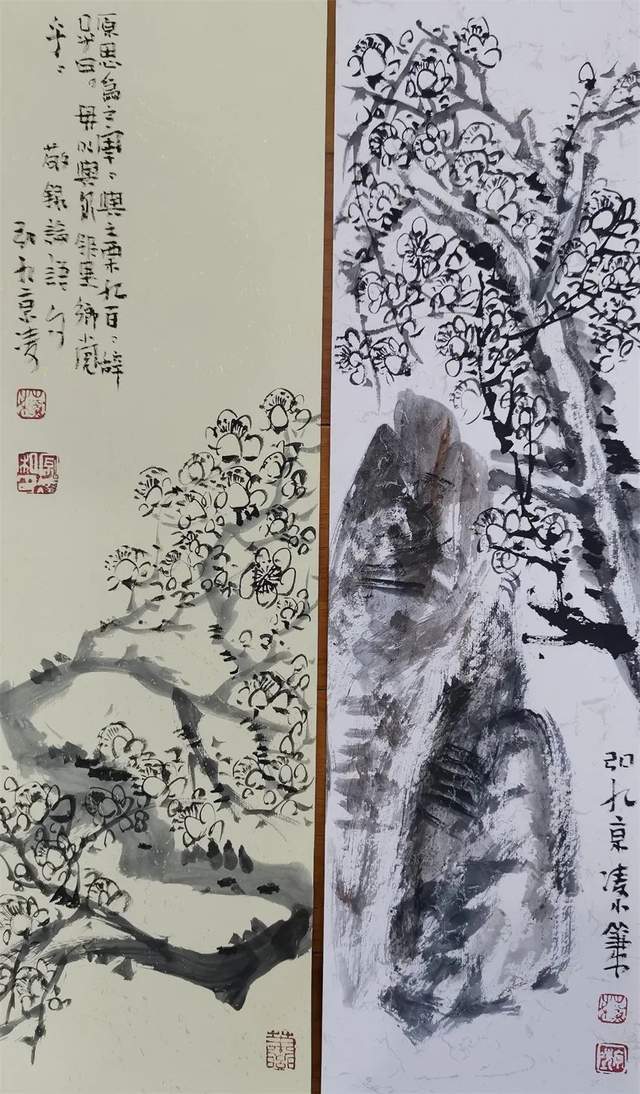 原思為之宰、與之粟九百、辭
子曰。毋以與爾鄰里鄉黨
乎、
敬錄論語句
九京凌
九京凌小筆